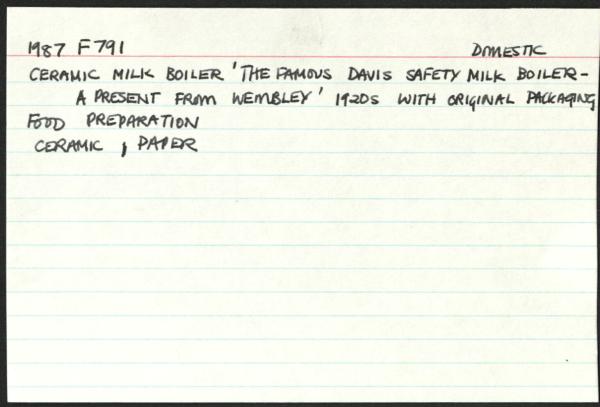 1987 F791 DOMESTIC
CERAMIC MILK BOILER 'THE FAMOUS DAVIS SAFETY MILK BOILER-
A PRESENT FROM WEMBLEY' 1920S WITH ORIGINAL PACKAGING
FOOD PREPARATION
CERAMIC, PAPER